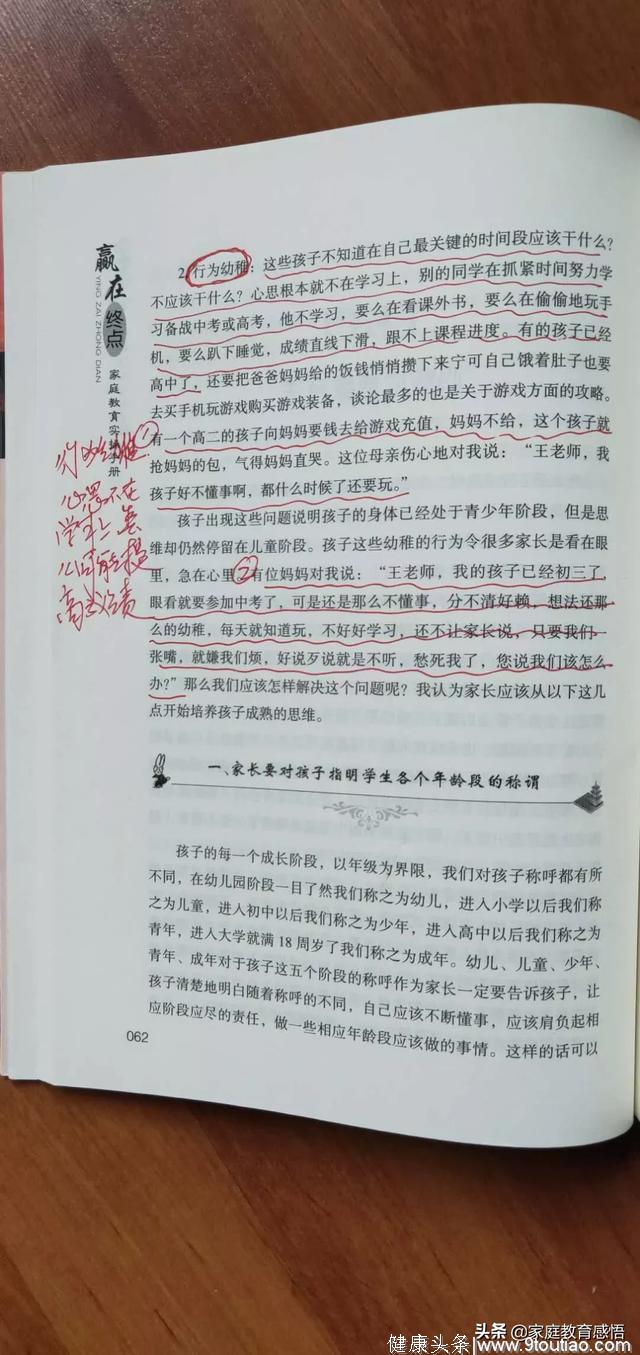 赢在终点
YING ZAI ZHONG DIAN
家庭教育实 册
2. 行为幼稚：这些孩子不知道在自己最关键的时间段应该干什么？
不应该干什么？心思根本就不在学习上，别的同学在抓紧时间努力学
习备战中考或高考，他不学习，要么在看课外书，要么在偷偷地玩手
机，要么趴下睡觉，成绩直线下滑，跟不上课程进度。有的孩子已经
高中了，还要把爸爸妈妈给的饭钱悄悄攒下来宁可自己饿着肚子也要
去买手机玩游戏购买游戏装备，谈论最多的也是关于游戏方面的攻略。
有一个高二的孩子向妈妈要钱去给游戏充值，妈妈不给，这个孩子就
抢妈妈的包，气得妈妈直哭。这位母亲伤心地对我说：“王老师，我
孩子好不懂事啊，都什么时候了还要玩。”
孩子出现这些问题说明孩子的身体已经处于青少年阶段，但是思
维却仍然停留在儿童阶段。孩子这些幼稚的行为令很多家长是看在眼
里，急在心里②有位妈妈对我说：“王老师，我的孩子已经初三了，
眼看就要参加中考了，可是还是那么不懂事，分不清好赖，想法还那
么的幼稚，每天就知道玩，不好好学习，还不让家长说，只要我们一
张嘴，就嫌我们烦，好说歹说就是不听，愁死我了，您说我们该怎么
办？”那么我们应该怎样解决这个问题呢？我认为家长应该从以下这几
点开始培养孩子成熟的思维。
行为幼稚①
心思不在
学习上 怎
么可能提
高成绩
一、家长要对孩子指明学生各个年龄段的称谓
孩子的每一个成长阶段，以年级为界限，我们对孩子称呼都有所
不同，在幼儿园阶段一目了然我们称之为幼儿，进入小学以后我们称
之为儿童，进入初中以后我们称之为少年，进入高中以后我们称之为
青年，进入大学就满 18 周岁了我们称之为成年。幼儿、儿童、少年、
青年、成年对于孩子这五个阶段的称呼作为家长一定要告诉孩子，让
孩子清楚地明白随着称呼的不同，自己应该不断懂事，应该肩负起相
应阶段应尽的责任，做一些相应年龄段应该做的事情。这样的话可以
062
头条 @家庭教育感悟
健康头条 www.9toutiao.com